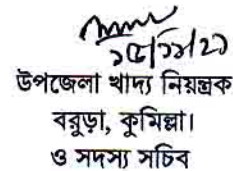 উপজেলা খাদ্য নিয়ন্ত্রক
বরুড়া, কুমিল্লা।
ও সদস্য সচিব